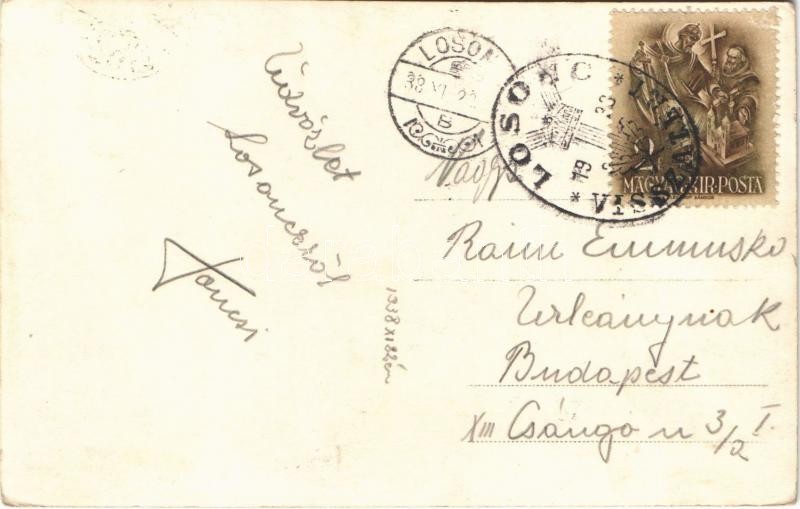 Üdvözlet
Losonczról
Jancsi
1938 XI 22én
LOSON
38 XI. 22
B
LOSONC * VISSZATÉRT *
19 38
MAGYAR·KIR·POSTA
Nagys
Rainu Emmusko
Urleánynak
Budapest
XIII Csángo u 3/2 I.